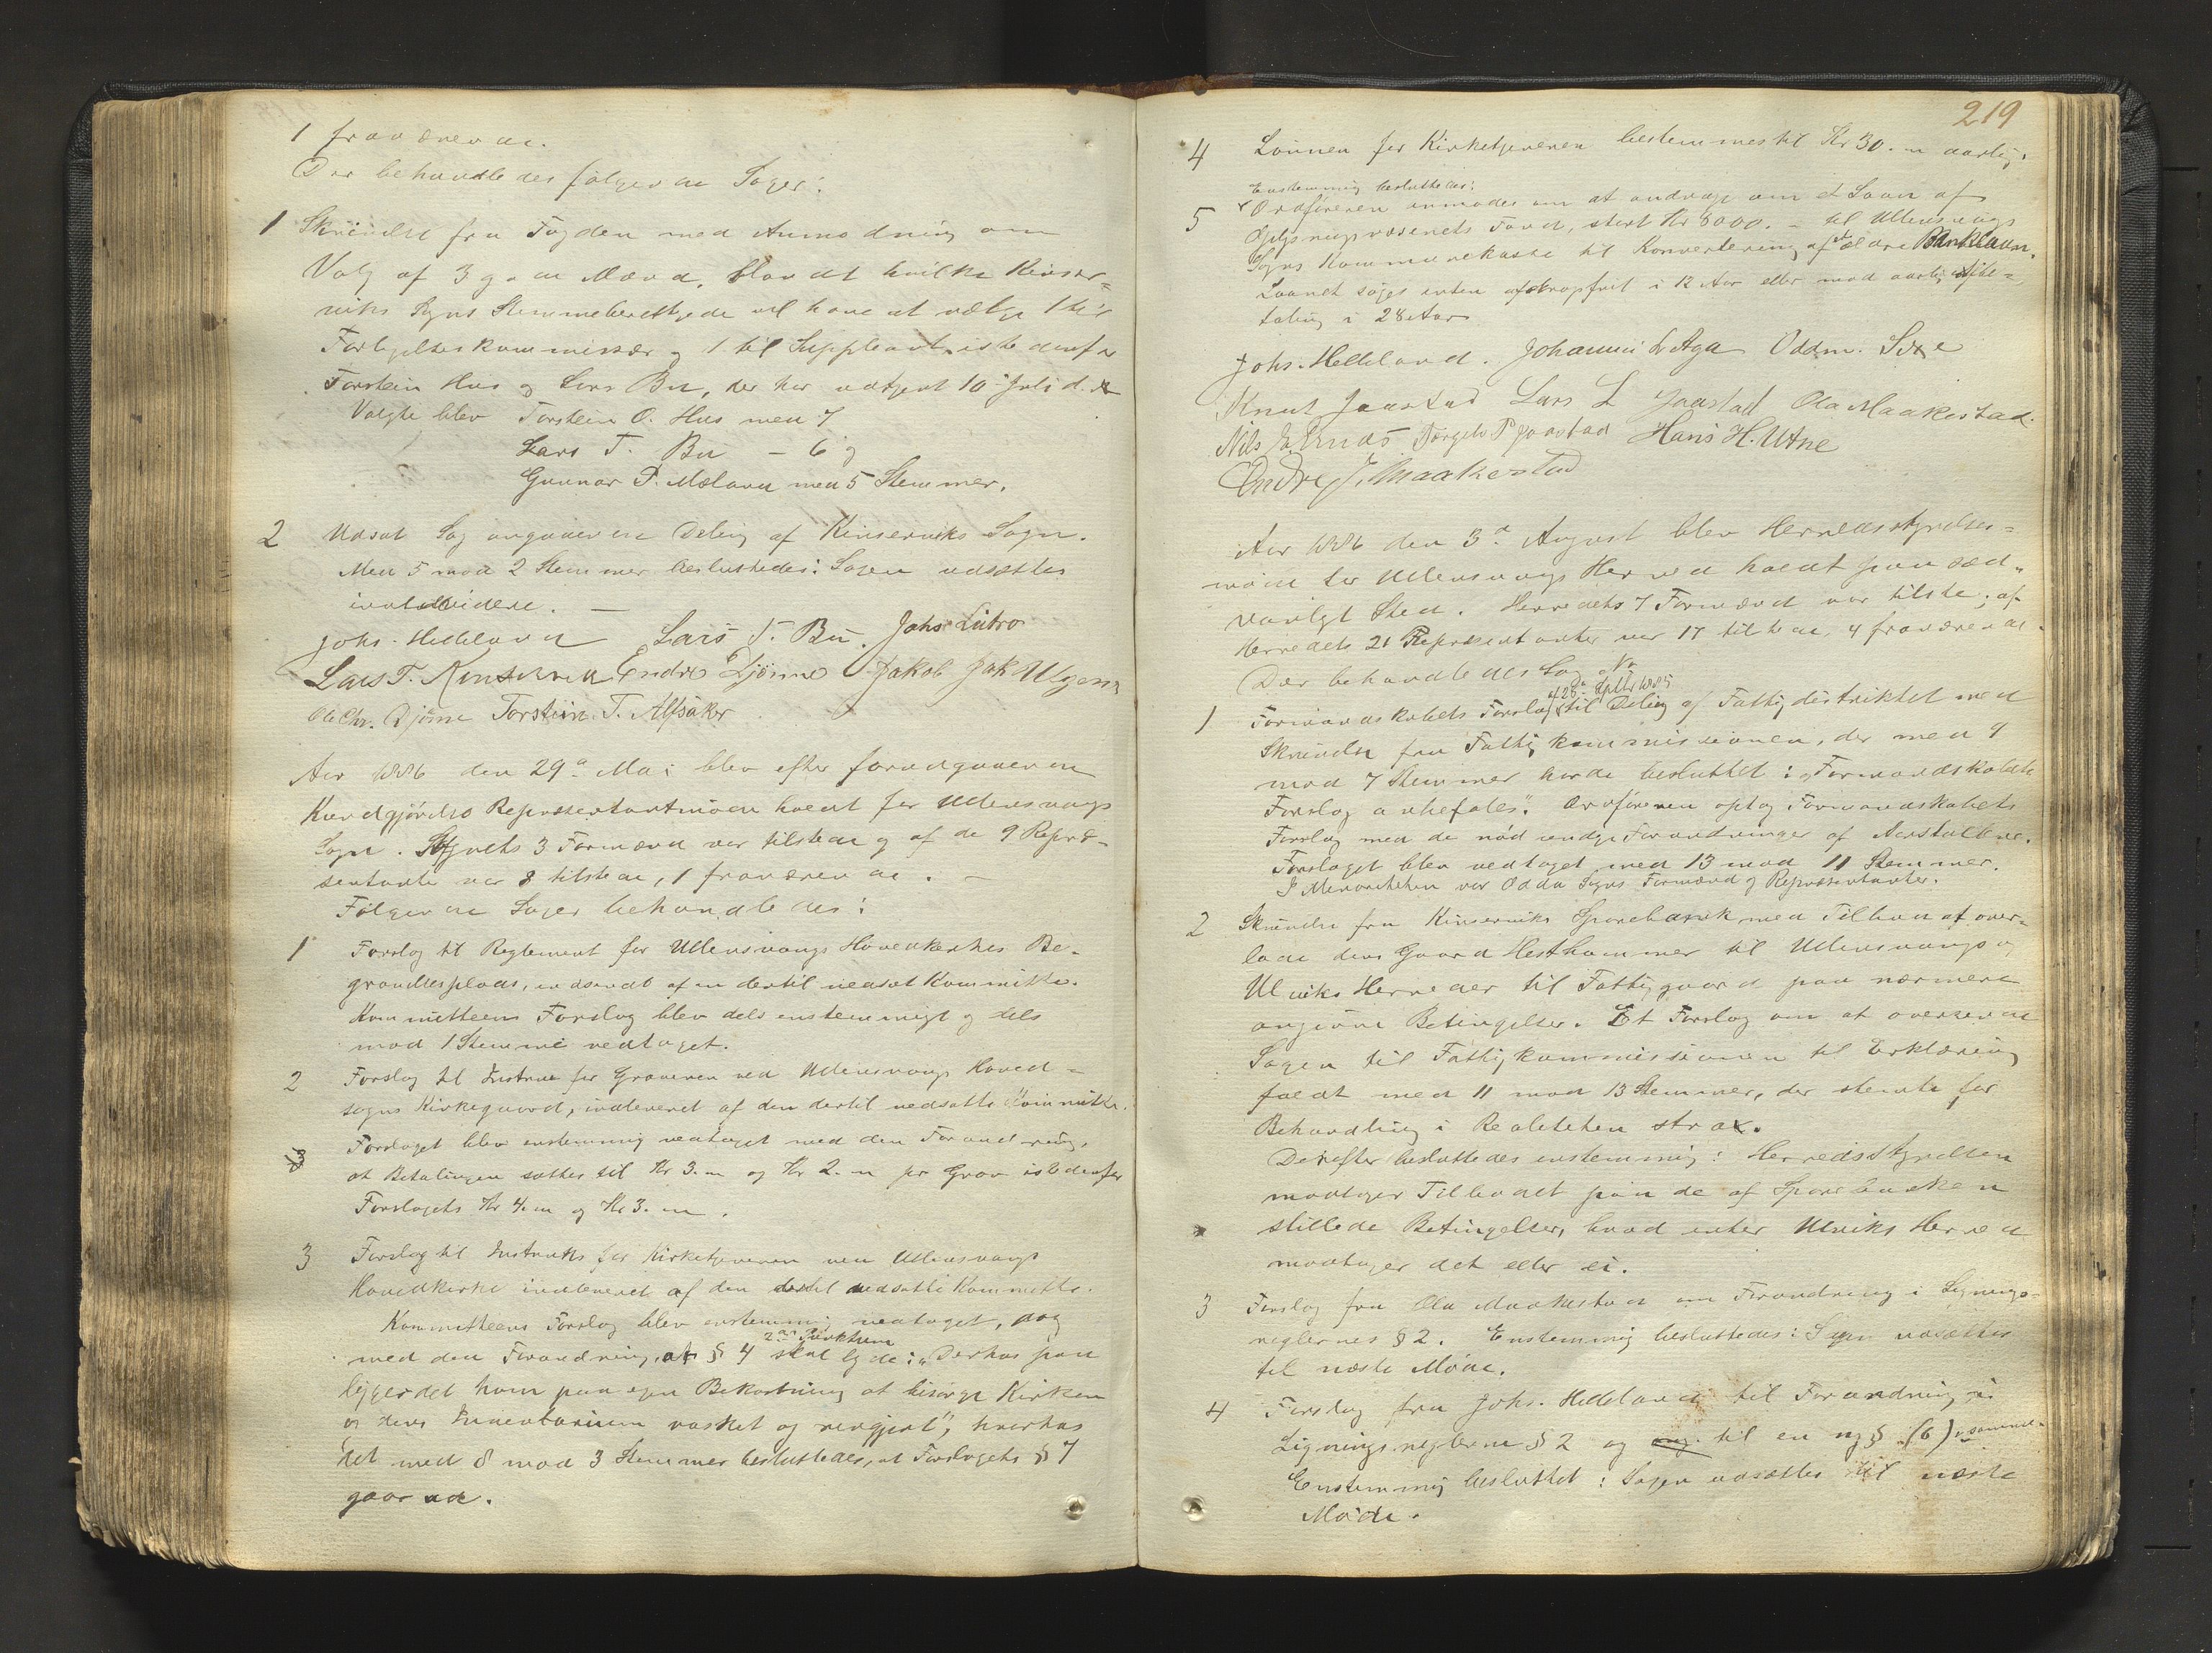 1 fraværende.
Der behandledes følgende Sager:
1 Skrivelse fra Fogden med Anmodning om
Valg af 3 gode Mænd, blandt hvilke Kinser-
viks Sogns Stemmeberettigede vil have at vælge 1 til
Forligelseskommissær og 1 til Suppleant istedenfor
Torstein Hus og Lars Bu, der har udtjent 10 Juli d. A
Valgte blev Torstein O. Hus med 7
Lars T. Bu - 6 og
Gunnar P. Mæland med 5 Stemmer.
2 Udsat Sag angaaende Deling af Kinserviks Sogn.
Med 5 mod 2 Stemmer besluttedes: Sagen udsættes
indtil videre. —
Johs. Helleland Lars T. Bu. Johs Lutro
Lars T. Kinservik Endre Djönne Jakob Jak Ulgenes
Ole Chr. Djönne Torstein T. Alfsaker
Aar 1886 den 29de Mai blev efter forudgaaende
Kundgjörelse Repræsentantmöde holdt for Ullensvangs
Sogn. Sognets 3 Formænd var tilstede og af de 9 Repræ-
sentanter var 8 tilstede, 1 fraværende. —
Fölgende Sager behandledes:
1 Forslag til Reglement for Ullensvangs Hovedkirkes Be-
gravelsesplads, indsendt af en dertil nedsat Kommitte.
Kommitteens Forslag blev dels enstemmigt og dels
mod 1 Stemme vedtaget.
2 Forslag til Instrux for Graveren ved Ullensvangs Hoved-
sogns Kirkegaard, indleveret af den dertil nedsatte Kommitte.
3 Forslaget blev enstemmig vedtaget med den Forandring,
at Betalingen sættes til Kr 3.00 og Kr 2.00 pr Grav istedenfor
Forslagets Kr 4.00 og Kr 3.00.
3 Forslag til Instruks for Kirketjeneren ved Ullensvangs
Hovedkirke indleveret af den dertil nedsatte Kommitte.
Kommitteens Forslag blev enstemmig vedtaget, dog
2det Punktum
med den Forandring, at § 4 skal lyde: "Derhos paa
ligger det ham paa egen Bekostning at besørge Kirken
og dens Inventarium vasket og rengjort", hvorhos
det med 8 mod 3 Stemmer besluttedes, at Forslagets § 7
gaar ud.
219
4 Lönnen for Kirketjeneren bestemmes til Kr 30.00 aarlig.
Enstemmig besluttedes:
5 Ordføreren anmodes om at andrage om et Laan af
Oplysningsvæsenets Fond, stort Kr 8000. - til Ullensvangs
Sogns Kommunekasse til Konvertering af det ældre Banklaan.
Laanet söges enten afdragsfrit i 12 Aar eller mod aarlig Afbe-
taling i 28 Aar
Johs. Helleland. Johannes L Aga Oddm. Sexe
Knut Jaastad Lars L Jaastad Ola Maakestad.
Nils J. Ernes Torgels P Jaastad Hans H. Utne
Endre J. Maakestad
Aar 1886 den 3de August blev Herredsstyrelses-
möde for Ullensvangs Herred holdt paa sæd-
vanligt Sted. Herredets 7 Formænd var tilstede; af
Herredets 21 Repræsentanter var 17 tilstede, 4 fraværende.
Der behandledes Sag No
af 28de Septbr 1885
1 Formandskabets Forslag til Deling af Fattigdistriktet med
Skrivelse fra Fattigkommissionen, der med 9
mod 7 Stemmer havde besluttet: "Formandskabets
Forslag anbefales". Ordføreren optog Formandskabets
Forslag med de nödvendige Forandringer af Aarstallene.
Forslaget blev vedtaget med 13 mod 11 Stemmer.
I Minoriteten var Odda Sogns Formænd og Repræsentanter.
2 Skrivelse fra Kinserviks Sparebank med Tilbud at over-
lade dens Gaard Hesthammer til Ullensvangs og
Ulviks Herreder til Fattiggaard paa nærmere
angivne Betingelser. Et Forslag om at oversende
Sagen til Fattigkommissionen til Erklæring
faldt med 11 mod 13 Stemmer, der stemte for
Behandling i Realiteten strax.
Derefter besluttedes enstemmig: Herredsstyrelsen
modtager Tilbudet paa de af Sparebanken
stillede Betingelser, hvad enten Ulviks Herred
modtager det eller ei.
3 Forslag fra Ola Maakestad om Forandring i Lignings-
reglernes § 2. Enstemmig besluttedes: Sagen udsættes
til næste Möde.
4 Forslag fra Johs. Helleland til Forandring i
Ligningsreglerne § 2 og til en ny § (6) i samme.
Enstemmig besluttet: Sagen udsættes til næste
Möde.